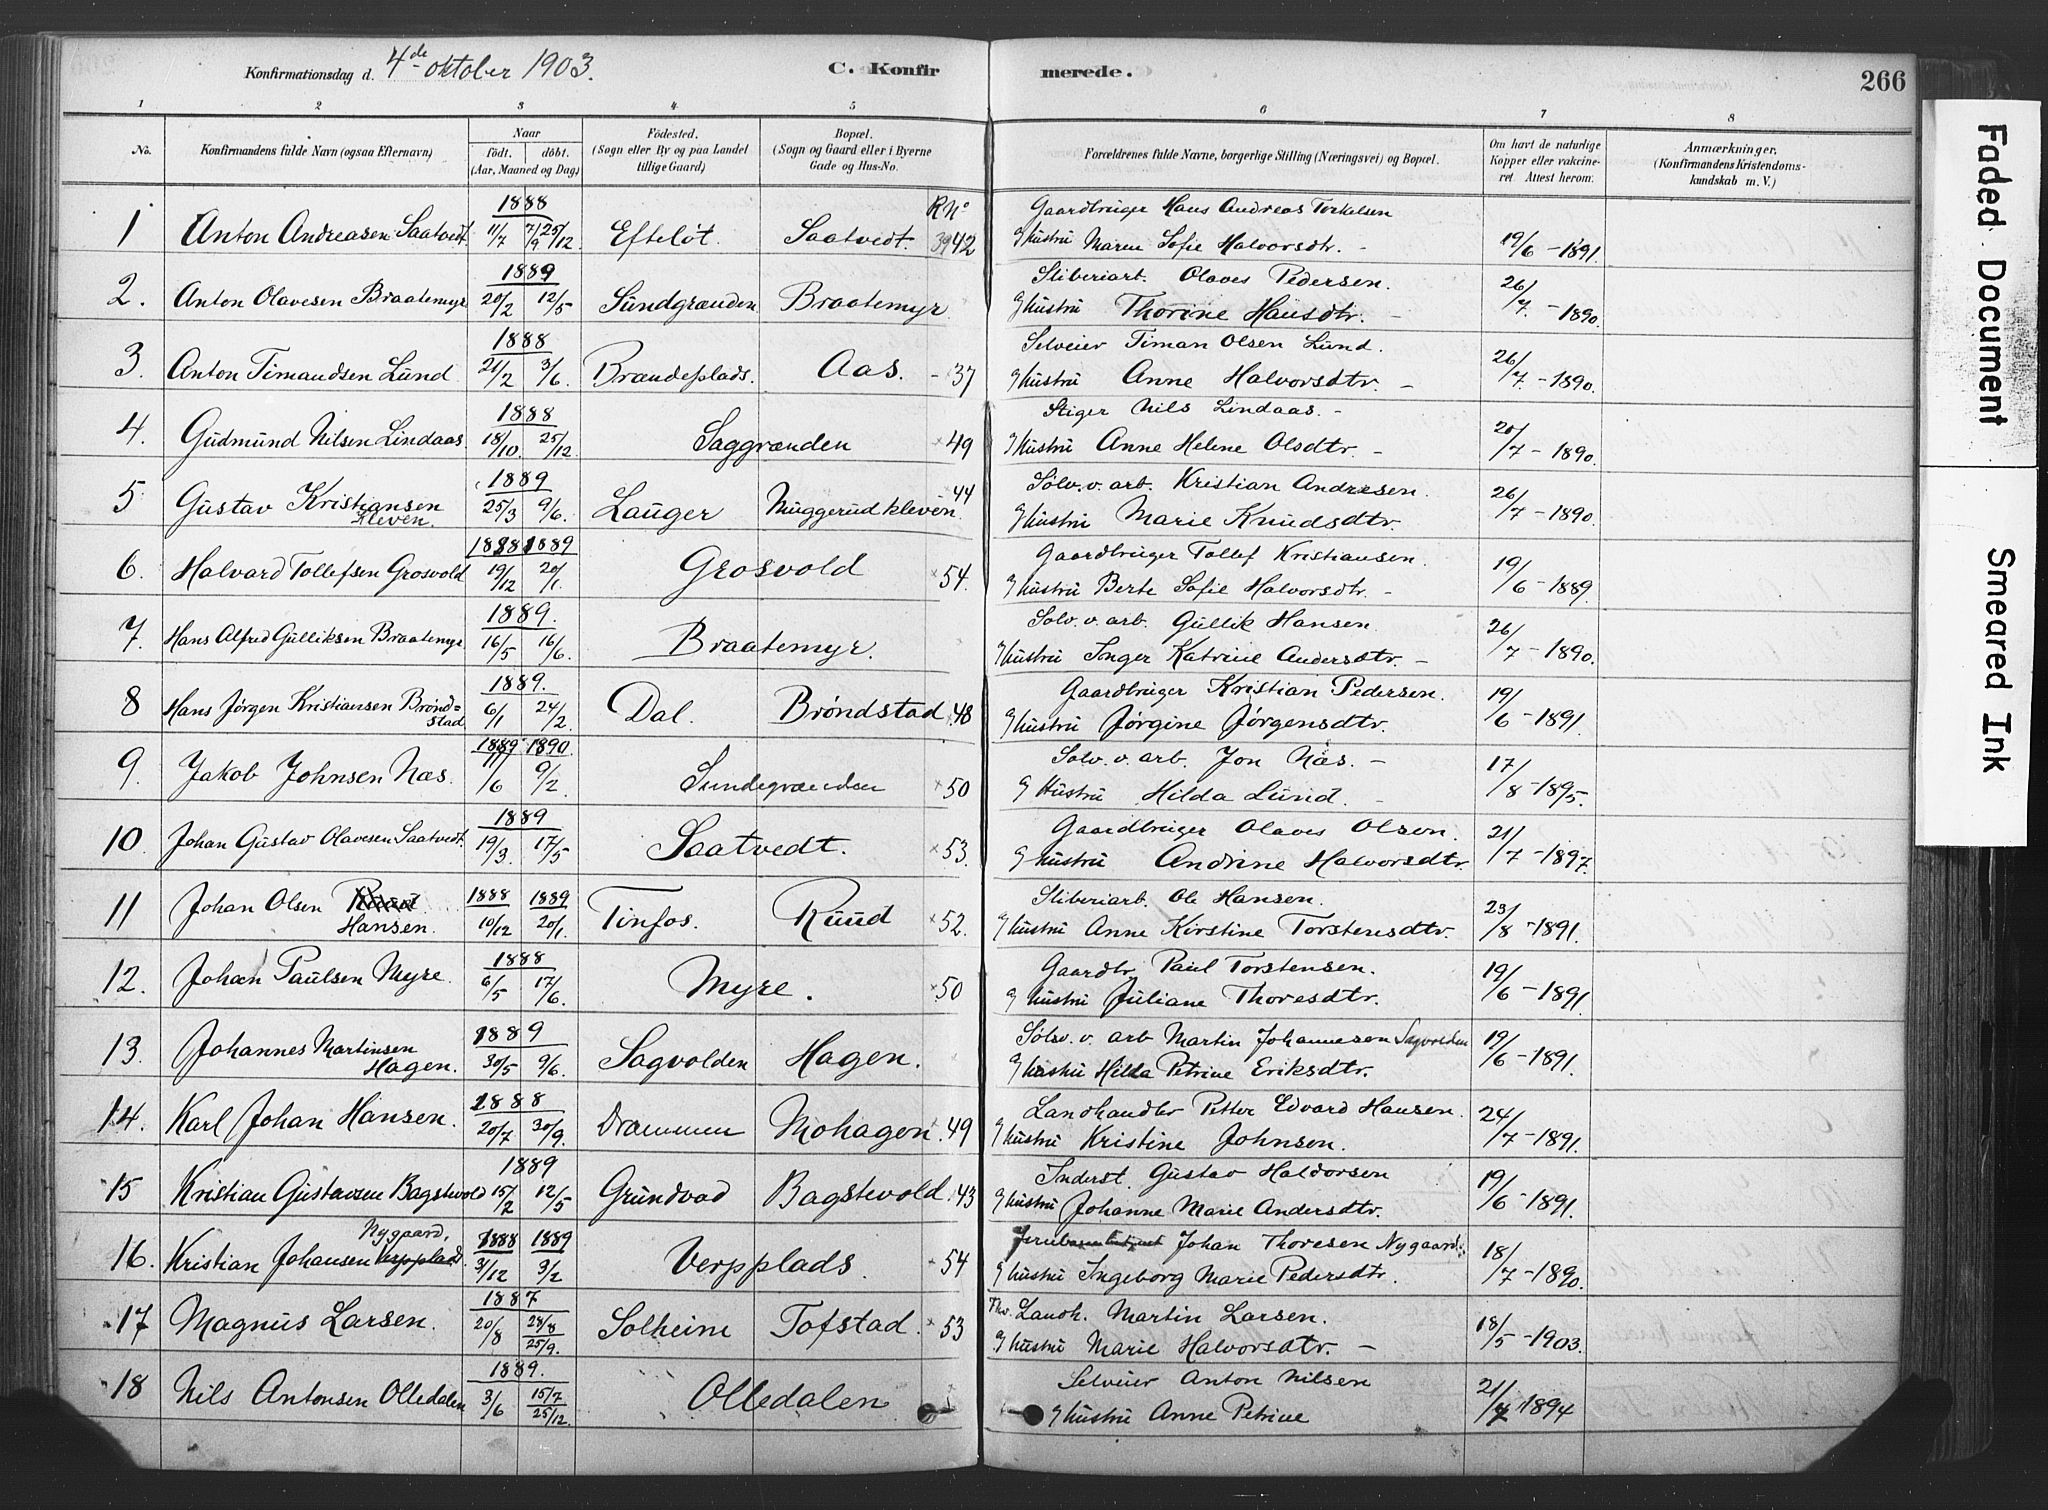 Konfirmationsdag d. 4de oktober 1903.
C. Konfirmerede.
266
1 2 3 4 5 6 7 8
No.
Konfirmandens fulde Navn (ogsaa Efternavn)
Naar
födt. döbt.
(Aar, Maaned og Dag)
Födested.
(Sogn eller By og paa Landet
tillige Gaard)
Bopæl.
(Sogn og Gaard eller i Byerne
Gade og Hus-No.
Forældrenes fulde Navne, borgerlige Stilling (Næringsvei) og Bopæl.
Om havt de naturlige
Kopper eller vakcine-
ret Attest herom.
Anmærkninger,
(Konfirmandens Kristendoms-
kundskab m. V.)
1888 R No Gaardbruger Hans Andreas Torkelsen
1 Anton Andreasen Saatvedt 11/7 7/9 25/12 Efteløt. Saatvedt. 3942 g hustru Maren Sofie Halvorsdtr. - 19/6 - 1891.
1889 Sliberiarb. Olaves Pedersen.
2. Anton Olavesen Braatemyr 20/2 12/5 Sundgrænden Braatemyr g hustru Thorine Hansdtr. - 26/7 - 1890.
1888 Selveier Timan Olsen Lund.
3. Anton Timandsen Lund 21/2 3/6 Brændeplads. Aas. - 37 g hustru Anne Halvorsdtr. - 26/7 - 1890.
1888 Stiger Nils Lindaas. -
4. Gudmund Nilsen Lindaas 18/10. 25/12 Saggrænden 49 g hustru Anne Helene Olsdtr. - 20/7 - 1890.
1889 44 Sölv. v. arb. Kristian Andresen.
5 Gustav Kristiansen Kleven. 25/3 9/6. Lauger Muggerudkleven g hustru Marie Knudsdtr. 26/7 - 1890.
1888 1889 Gaardbruger Tollef Kristiansen.
6. Halvard Tollefsen Grosvold 19/12 20/1. Grosvold 54. g hustru Berte Sofie Halvorsdtr. - 19/6 - 1889.
1889. Sölv. v. arb. Gullik Hansen.
7. Hans Alfred Gulliksen Braatemyr 16/5 16/6. Braatemyr. g hustru Inger Katrine Andersdtr. - 26/7 - 1890.
1889. Gaardbruger Kristian Pedersen.
8 Hans Jörgen Kristiansen Brönd=stad 6/1 24/2 Dal. Bröndstad 48 g hustru Jørgine Jørgensdtr. 19/6 - 1891.
1889 1890. Sölv. v. arb. Jon Näs. -
9. Jakob Johnsen Næs. /6 9/2. Sundegrænden 50 g Hustru Hilda Lund. - 17/8 - 1895.
1889 Gaardbruger Olaves Olsen.
10. Johan Gustav Olavesen Saatvedt. 19/3. 17/5 Saatvedt. 53. g hustru Andrine Halvorsdtr. 21/7 - 1897.
1888 1889 Sliberiarb. Ole Hansen.
11 Johan Olsen Hansen. 10/12 20/1. Tinfos. Ruud 52. g hustru Anne Kirstine Torstensdtr. 23/8 - 1891.
1888 Gaardbr. Paul Torstensen.
12. Johan Paulsen Myre. 6/5 17/6. Myre. 50 g hustru Juliane Thoresdtr. 19/6 - 1891.
1889 Sölv. v. arb Martin Johannesen Sagvolden
13. Johannes Martinsen Hagen. 30/5 9/6. Sagvolden Hagen. g hustru Hilda Petrine Eriksdtr. 19/6 - 1891.
1888 Landhandler Petter Edvard Hansen.
14. Karl Johan Hansen. 20/7 30/9. Drammen Mohagen 49 g hustru Kristine Johnsen. 24/7 - 1891.
1889 Inderst. Gustav Haldorsen
15 Kristian Gustavsen Bagstevold 15/2 12/5 Grundvad Bagstevold 43 g hustru Johanne Marie Andersdtr. 19/6 - 1891.
Nygaard, 1888 1889 Johan Thoresen Nygaard.
16. Kristian Johansen Verpplads. 31/12 3/2 Verpplads. 54 g hustru Ingeborg Marie Pedersdtr. 18/7 - 1890.
1887 Landh. Martin Larsen.
17 Magnus Larsen. 20/8 28/8 25/9. Solheim Tofstad. 53 g hustru Marie Halvorsdtr. - 18/5 - 1903.
1889. Selveier Anton Nilsen
18 Nils Antonsen Olledalen 3/6 15/7 25/12. Olledalen g hustru Anne Petrine 21/7 1894
Faded Document
Smeared Ink